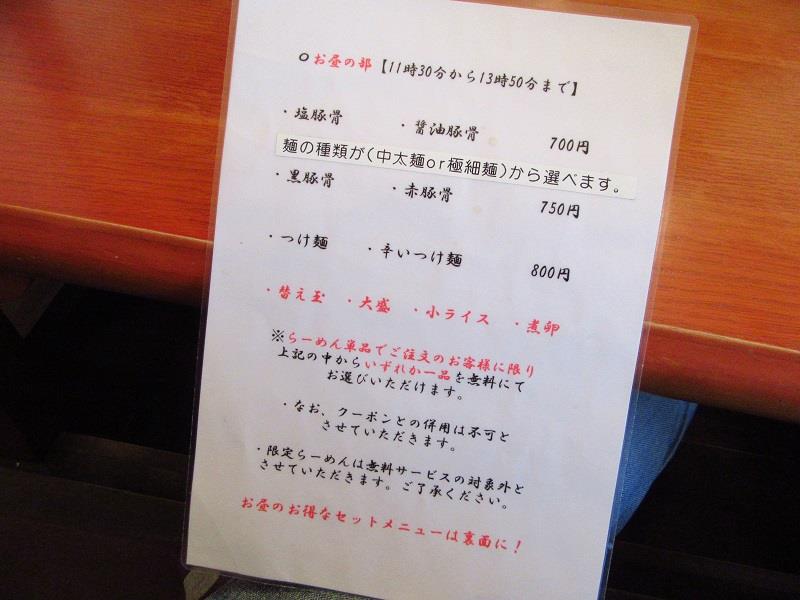 ○お昼の部【11時30分から13時50分まで】
・塩豚骨 ・醤油豚骨 700円
麺の種類が(中太麺or極細麺)から選べます。
・黒豚骨 ・赤豚骨 750円
・つけ麺 ・辛いつけ麺 800円
・替え玉 ・大盛 ・小ライス ・煮卵
※らーめん単品でご注文のお客様に限り
上記の中からいずれか一品を無料にて
お選びいただけます。
・なお、クーポンとの併用は不可と
させていただきます。
・限定らーめんは無料サービスの対象外と
させていただきます。ご了承ください。
お昼のお得なセットメニューは裏面に!